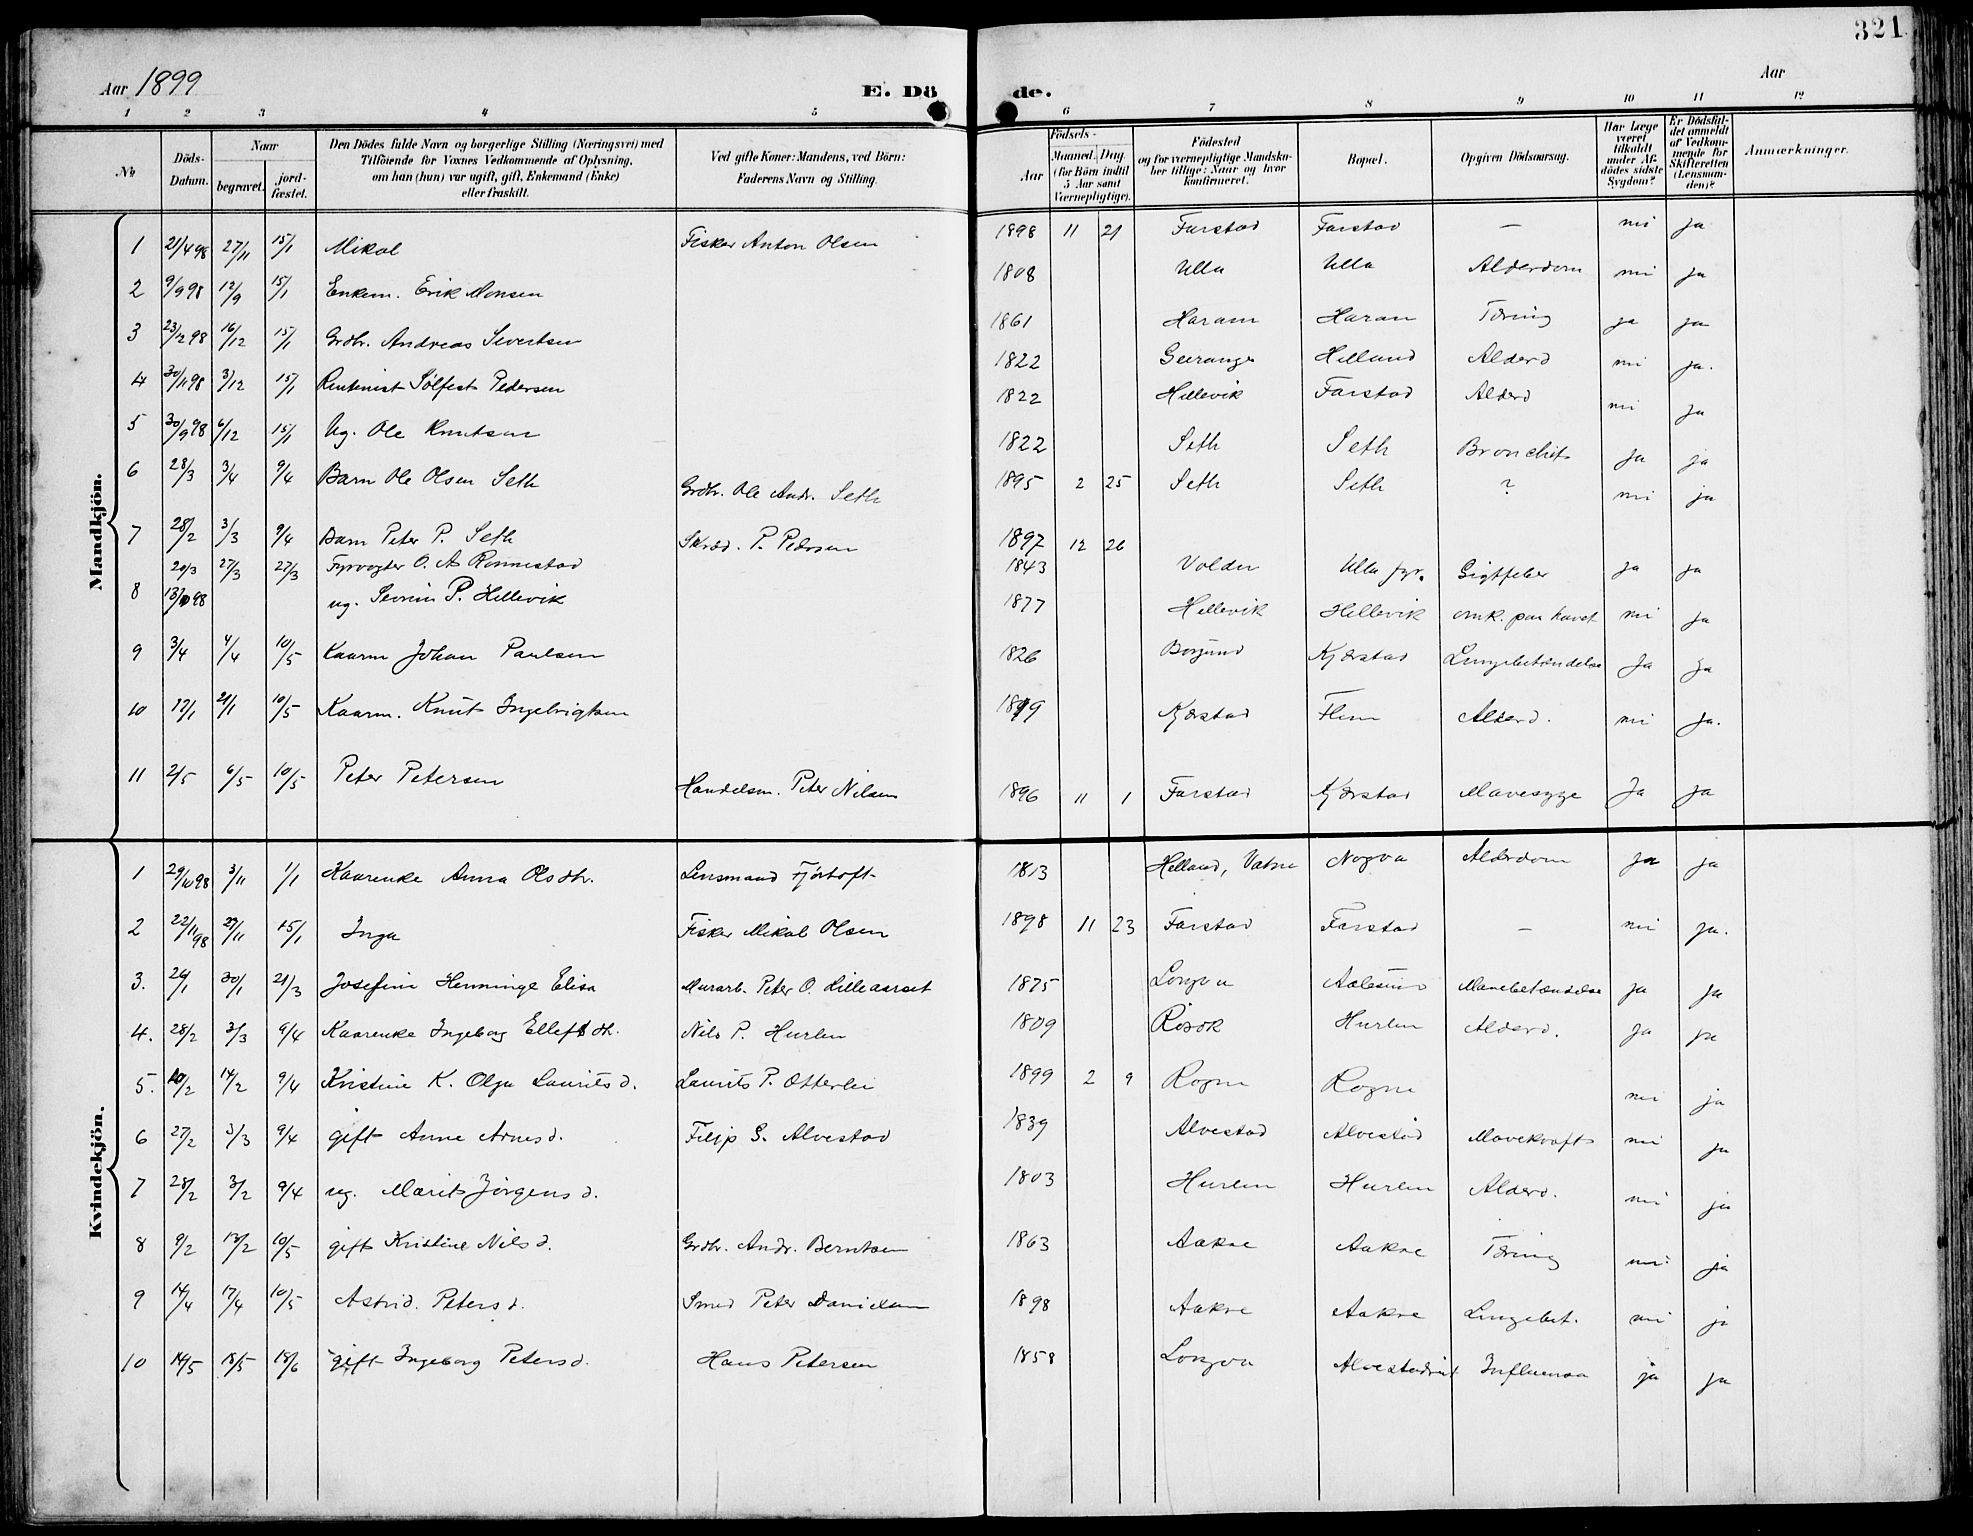 321
Aar 1899 E. Dö de. Aar
1 2 3 4 5 6 7 8 9 10 11 12
No Döds-Datum. Naar begravet. jordfæstet. Den Dödes fulde Navn og borgerlige Stilling (Næringsvei) med Tilföiende for Voxnes Vedkommende af Oplysning, om han (hun) var ugift, gift, Enkemand (Enke) eller fraskilt. Ved gifte Koner: Mandens, ved Börn: Faderens Navn og Stilling. Födsels- Aar Maaned. Dag (for Börn indtil 5 Aar samt Værnepligtige). Födested og for værnepligtige Mandskaber tillige: Naar og hvor konfirmeret. Bopæl. Opgiven Dödsaarsag. Har Læge været tilkaldt under Afdödes sidste Sygdom? Er Dödsfaldet anmeldt af Vedkommende for Skifteretten (Lensmanden)? Anmærkninger.
Mandkjön.
1 21/4 98 27/11 15/1 Mikal Fisker Anton Olsen 1898 11 21 Farstad Farstad — nei ja
2 9/9 98 12/9 15/1 Enkem. Erik Monsen 1808 Ulla Ulla Alderdom nei ja
3 23/12 98 16/12 15/1 Grdbr. Andreas Sivertsen 1861 Haram Haram Tæring ja ja
4 30/11 98 3/12 15/1 Rentenist Sölfest Pedersen 1822 Geiranger Helland Alderd nei ja.
1822 Hellevik Farstad Alderd nei ja
5 30/9 98 6/12 15/1 Ug. Ole Knutsen 1822 Seth Seth Bronchit ja ja
6 28/3 3/4 9/4 Barn Ole Olsen Seth Grdbr. Ole Andr. Seth 1895 2 25 Seth Seth ? nei ja
7 28/2 3/3 9/4 Barn Peter P. Seth Skræd. P. Pedersen 1897 12 26
20/3 27/3 27/3 Fyrvogter O. A. Ronnestad 1843 Volden Ulla fyr. Gigtfeber ja ja
8 13/10 98 ug. Severin P. Hellevik 1877 Hellevik Hellevik omk. paa havet nei ja
9 3/4 4/4 10/5 Kaarm Johan Paulsen 1826 Borgund Kjærstad Lungebetændelse Ja ja
10 17/1 21/1 10/5 Kaarm. Knut Ingebrigtsen 1819 Kjærstad Flem Alderd. nei ja.
11 2/5 6/5 10/5 Peter Petersen Handelsm. Peter Nilsen 1896 11 1 Farstad Kjærstad Mavesyge Ja ja
Kvindekjön.
1 29/10 98 3/11 1/1 Kaarenke Anna Olsdtr. Lensmand Fjörtoft 1813 Helland, Vatne Nogva Alderdom ja ja
2 22/11 98 27/11 15/1 Inga Fisker Mikal Olsen 1898 11 23 Farstad Farstad — nei ja.
3. 26/1 30/1 21/3 Josefine Henninge Elisa Murarb. Peter O. Lilleaarset 1875 Longva Aalesund Mavebetændelse ja ja
4. 28/2 3/3 9/4 Kaarenke Ingeborg Elleftdtr. Nils P. Hurlen 1809 Rösok Hurlen Alderd. ja ja
5. 10/2 14/2 9/4 Kristine K. Olga Lauritsd. Laurits P. Otterlei 1899 2 9 Rogne Rogne nei ja
6 27/2 3/3 9/4 gift Anne Arnesd. Filip S. Alvestad 1839 Alvestad Alvestad Mavekræft nei ja
7 28/2 3/2 9/4 ug. Marit Jörgensd. 1803 Hurlen Hurlen Alderd. nei ja
8 9/2 13/2 10/5 gift Kristine Nilsd. Grdbr. Andr. Berntsen 1863 Aakre Aakre Tæring nei ja
9 14/4 17/4 10/5 Astrid Petersd. Smed Peter Danielsen 1898 Aakre Aakre Lungebet. nei ja
10 14/5 18/5 18/6 gift Ingeborg Petersd. Hans Petersen 1858 Longva Influensa ja ja